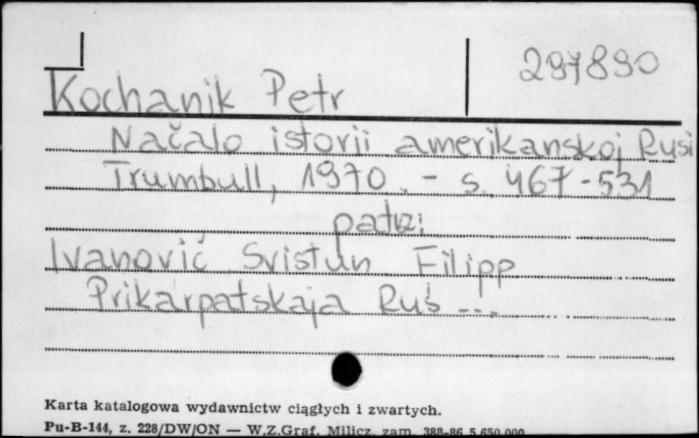 297890
Kochanik Petr
Načalo istorii amerikanskoj Rusi
Trumbull, 1970. - s. 467-531
patrz:
Ivanovič Svistun Filipp
Prikarpatskaja Ruś ...
Karta katalogowa wydawnictw ciągłych i zwartych.
Pu-B-144, z. 228/DW/ON — W.Z.Graf. Milicz, zam. 388-86 5.650.000